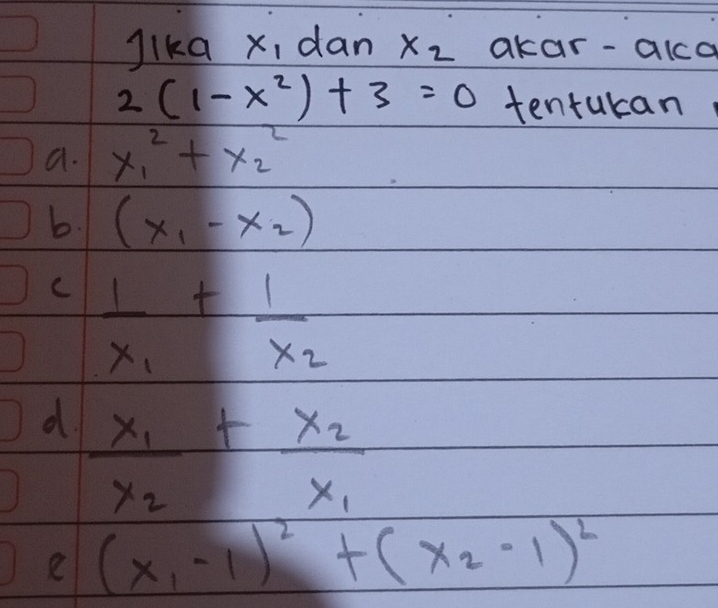 Jika x₁ dan x₂ akar-aka
2(1-x²)+3=0 tentukan
a. x₁² + x₂²
b. (x₁ - x₂)
c 1/x₁ + 1/x₂
d. x₁/x₂ + x₂/x₁
e (x₁-1)² + (x₂-1)²